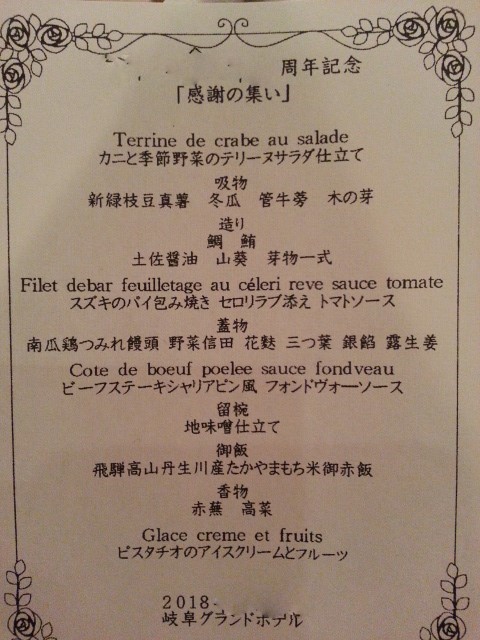 周年記念
「感謝の集い」
Terrine de crabe au salade
カニと季節野菜のテリーヌサラダ仕立て
吸物
新緑枝豆真薯 冬瓜 管牛蒡 木の芽
造り
鯛 鮪
土佐醤油 山葵 芽物一式
Filet debar feuilletage au céleri reve sauce tomate
スズキのパイ包み焼き セロリラブ添え トマトソース
蓋物
南瓜鶏つみれ饅頭 野菜信田 花麩 三つ葉 銀餡 露生姜
Cote de boeuf poelee sauce fondveau
ビーフステーキシャリアピン風 フォンドヴォーソース
留椀
地味噌仕立て
御飯
飛騨高山丹生川産たかやまもち米御赤飯
香物
赤蕪 高菜
Glace creme et fruits
ピスタチオのアイスクリームとフルーツ
2018
岐阜グランドホテル